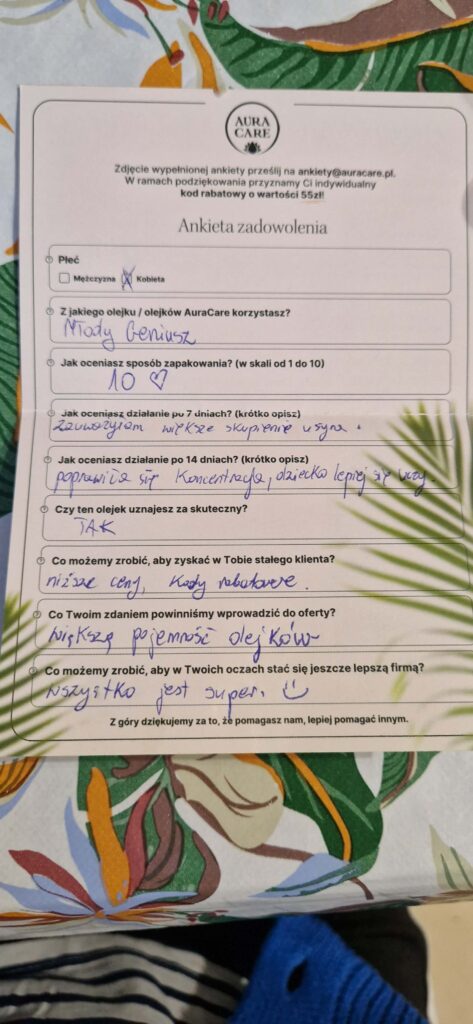 AURA
CARE
Zdjęcie wypełnionej ankiety prześlij na ankiety@auracare.pl.
W ramach podziękowania przyznamy Ci indywidualny
kod rabatowy o wartości 55zł!
Ankieta zadowolenia
Płeć
Mężczyzna Kobieta
Z jakiego olejku / olejków AuraCare korzystasz?
Młody Geniusz
Jak oceniasz sposób zapakowania? (w skali od 1 do 10)
10 ♡
Jak oceniasz działanie po 7 dniach? (krótko opisz)
zauważyłam większe skupienie u syna.
Jak oceniasz działanie po 14 dniach? (krótko opisz)
poprawiła się koncentracja, dziecko lepiej się uczy.
Czy ten olejek uznajesz za skuteczny?
TAK
Co możemy zrobić, aby zyskać w Tobie stałego klienta?
niższe ceny, kody rabatowe.
Co Twoim zdaniem powinniśmy wprowadzić do oferty?
większą pojemność olejków
Co możemy zrobić, aby w Twoich oczach stać się jeszcze lepszą firmą?
wszystko jest super. :)
Z góry dziękujemy za to, że pomagasz nam, lepiej pomagać innym.